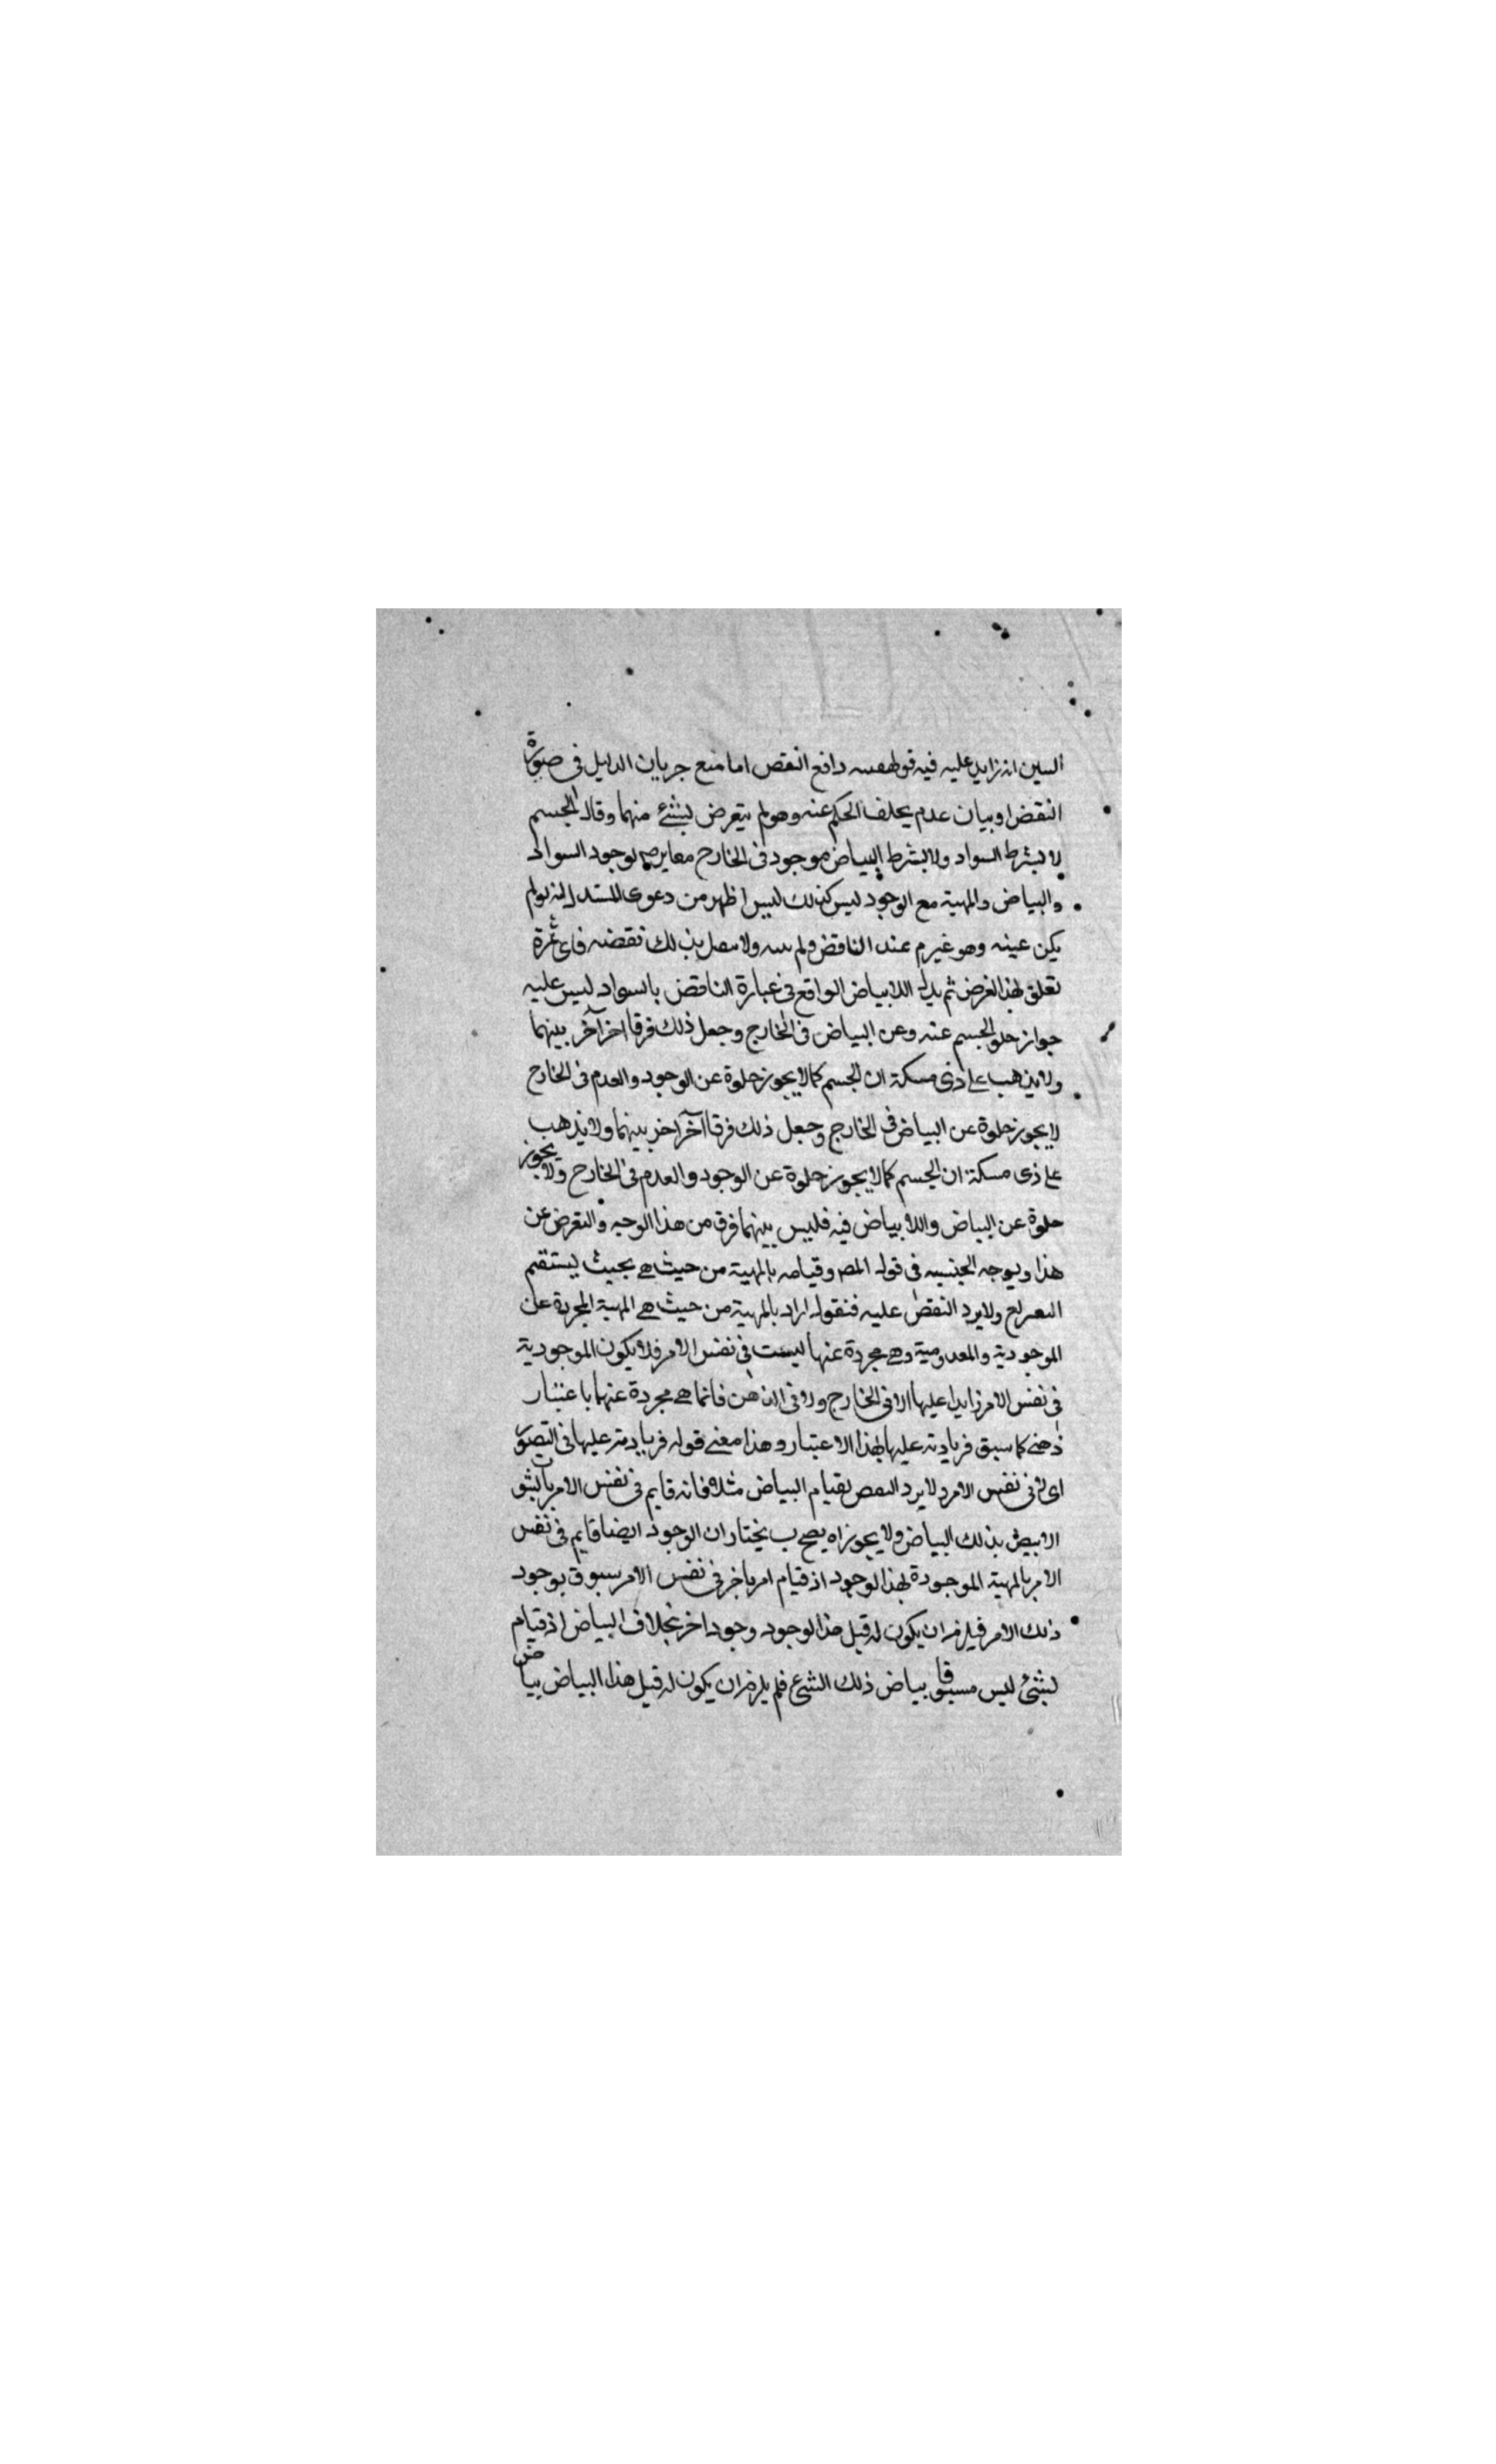 انه زايد عليه فيه دافع النقض اما منع جريان الدليل في صورة
النقض او بيان عدم تخلف الحكم عنه وهو لم يتعرض لشئ منهما وقال الجسم
لا بشرط السواد ولا بشرط البياض موجود في الخارج مغاير لوجود السواد
والبياض والمهية مع الوجود ليس كذلك ليس اظهر من دعوى المستدل انه لو لم
يكن عينه وهو غير م عند الناقض ولم ولا بذلك نقضه فاى ثمرة
تعلق لهذا الغرض ثم بدل اللابياض الواقع في عبارة الناقض بالسواد ليس عليه
جواز خلو الجسم عنه وعن البياض في الخارج وجعل ذلك فرقا اخر آخر بينهما
ولا يذهب على ذى مسكة ان الجسم كما لا يجوز خلوه عن الوجود والعدم في الخارج
لا يجوز خلوه عن البياض في الخارج وجعل ذلك فرقا آخر اخر بينهما ولا يذهب
على ذى مسكة ان الجسم كما لا يجوز خلوه عن الوجود والعدم في الخارج ولا يجوز
خلوه عن البياض واللابياض فيه فليس بينهما فرق من هذا الوجه والنعرض عن
هذا ويوجه في قوله المص وقيامه بالمهية من حيث هى بحيث يستقيم
ولا يرد النقض عليه فنقول اراد بالمهية من حيث هى المهية المجردة عن
الموجودية والمعدومية وهى مجردة عنها ليست في نفس الامر فلا يكون الموجودية
في نفس الامر زايدا عليها لا في الخارج ولا في الذهن فانما هى مجردة عنهما باعتبار
ذهنى كما سبق فزيادته عليها لهذا الاعتبار وهذا معنى قوله فزيادته عليها في التصور
اى لا في نفس الامر ولا يرد النقض بقيام البياض مثلا فانه قايم في نفس الامر بالشئ
الابيض بذلك البياض ولا يجوز ان يختار ان الوجود ايضا قايم في نفس
الامر بالمهية الموجودة لهذا الوجود اذ قيام امر باخر في نفس الامر مسبوق بوجود
ذلك الامر فيلزم ان يكون له قبل هذا الوجود وجود اخر بخلاف البياض اذ قيام
لشئ ليس مسبوقا بياض ذلك الشئ فلم يلزم ان يكون له قبل هذا البياض بياض